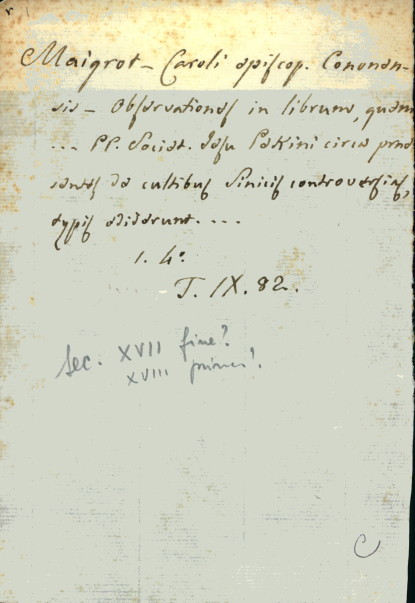 Maigrot - Caroli episcop. Cononen-
sis - Observationes in librum, quem
... PP. Societ. Jesu Pekini circa prae
sentes de cultibus Sinicis controversias,
typis ediderunt. ...
1. 4°.
T. IX. 82.
sec. XVII fine?
XVIII princ?
C